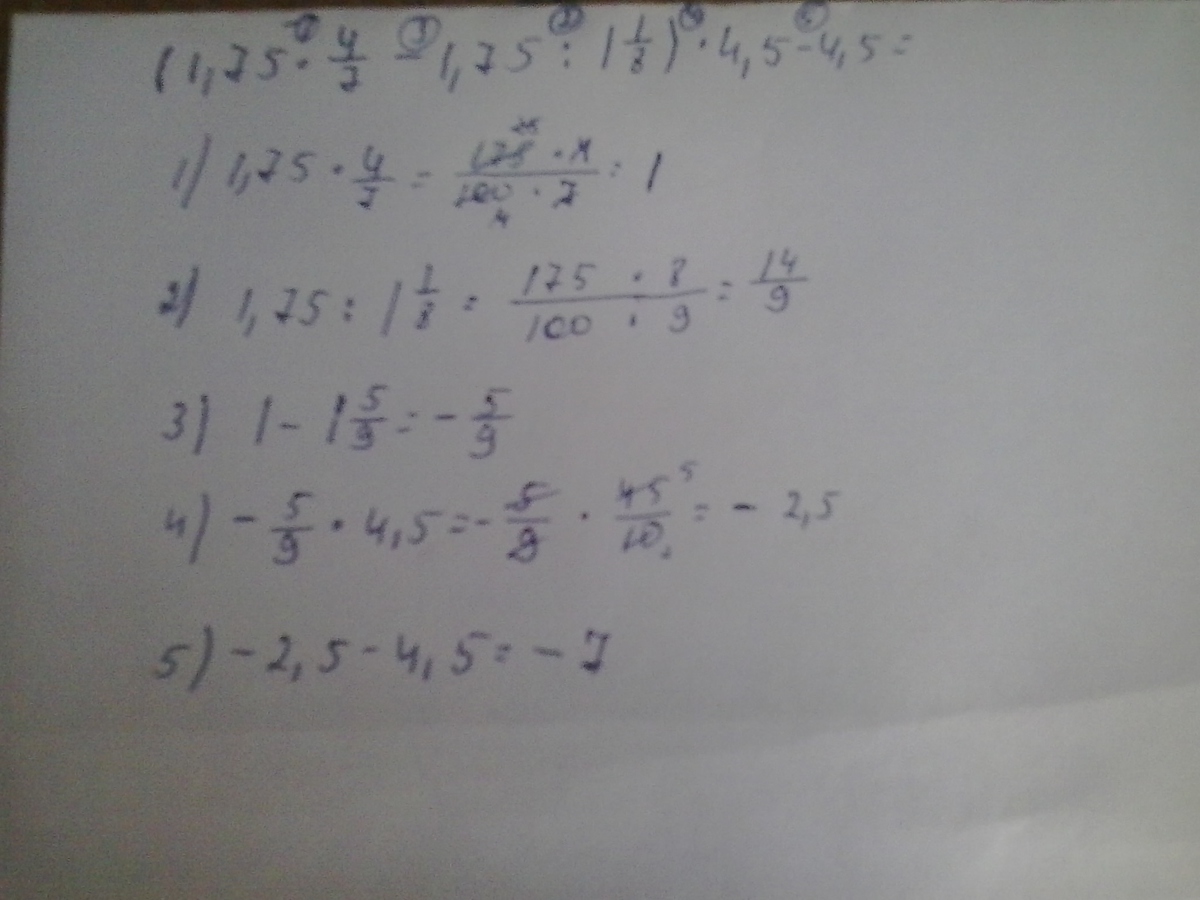 (1,75 · 4/7 - 1,75 : 1 1/8) · 4,5 - 4,5 =
1) 1,75 · 4/7 = 175 · 4 / 100 · 7 = 1
2) 1,75 : 1 1/8 = 175 · 8 / 100 · 9 = 14/9
3) 1 - 1 5/9 = - 5/9
4) - 5/9 · 4,5 = - 5/9 · 45/10 = - 2,5
5) - 2,5 - 4,5 = - 7